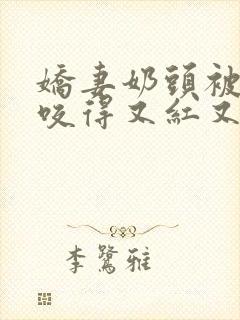 嬌妻奶頭被
咬得又紅又
李鷺雅